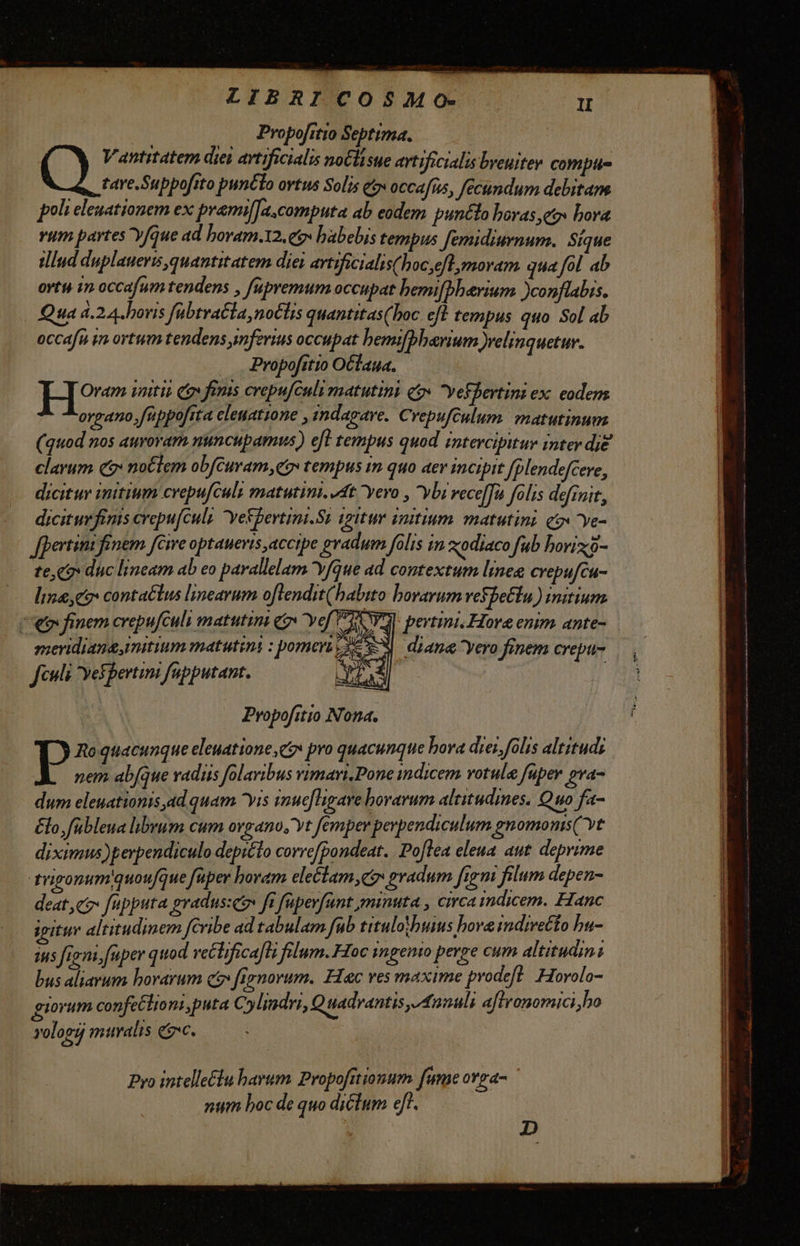 LIBRI COSMO- II
Propoſitio Septima.
QVantitatem diei artificialis noctisue artificialis breuiter compu-
tare. Suppoſito puncto ortus Solis & occaſus, ſecundum debitam
poli eleuationem ex præmiſſa, computa ab eodem puncto horas, & hora
rum partes vſque ad horam. 12, & habebis tempus ſemidiurnum. Sique
illud duplaueris, quantitatem diei artificialis (hoc, eſt, moram qua ſol ab
ortu in occaſum tendens, ſupremum occupat hemiſphærium) conflabis.
Qua à. 24. horis ſubtracta, noctis quantitas (hoc eſt tempus quo Sol ab
occaſu in ortum tendens, inferius occupat hemiſphærium) relinquetur.
Propoſitio Octaua.
HOram initii & finis crepuſculi matutini & veſpertini ex eodem
organo, ſuppoſita eleuatione, indagare. Crepuſculum matutinum
(quod nos auroram nuncupamus) eſt tempus quod intercipitur inter diē
clarum & noctem obſcuram, & tempus in quo aer incipit ſplendeſcere,
dicitur initium crepuſculi matutini. At vero, vbi receſſu ſolis deſinit,
dicitur finis crepuſculi veſpertini. Si igitur initium matutini & ve-
ſpertini finem ſcire optaueris, accipe gradum ſolis in zodiaco ſub horizō-
te, & duc lineam ab eo parallelam vſque ad contextum lineæ crepuſcu-
linæ, & contactus linearum oſtendit (habito horarum reſpectu) initium
& finem crepuſculi matutini & veſ pertini. Horæ enim ante-
meridianæ, initium matutini : pomeri dianæ vero finem crepu-
ſculi veſpertini ſupputant.
Propoſitio Nona.
PRo quacunque eleuatione, & pro quacunque hora diei, ſolis altitudi
nem abſque radiis ſolaribus rimari. Pone indicem rotulæ ſuper gra-
dum eleuationis, ad quam vis inueſtigare horarum altitudines. Quo fa-
cto, ſubleua librum cum organo, vt ſemper perpendiculum gnomonis (vt
diximus) perpendiculo depicto correſpondeat. Poſtea eleua aut deprime
trigonum quouſque ſuper horam electam, & gradum ſigni filum depen-
deat, & ſupputa gradus: & ſi ſuperſunt, minuta, circa indicem. Hanc
igitur altitudinem ſcribe ad tabulam ſub titulo huius horæ indirecto hu-
ius ſigni, ſuper quod rectificaſti filum. Hoc ingenio perge cum altitudini
bus aliarum horarum & ſignorum. Hæc res maxime prodeſt Horolo-
giorum confectioni, puta Cylindri, Quadrantis, Annuli aſtronomici, ho
rologij muralis &c.
Pro intellectu harum Propoſitionum ſume orga-
num hoc de quo dictum eſt.
D